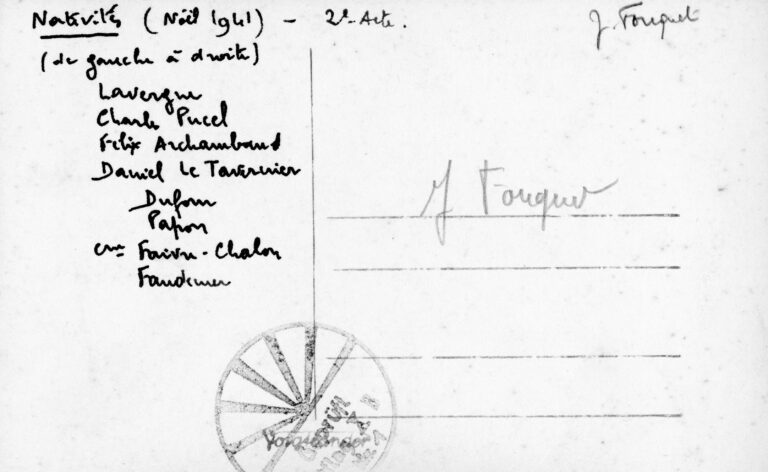 Nativité (Noël 1941) - 2e Acte.
J. Fouquet
(de gauche à droite)
Lavergne
Charles Pucel
Felix Archambaud
Daniel Le Tavernier
Dufour
Papon
cne Faivre-Chalon
Faudemer
J Fouquet
Voigtländer
Geprüft